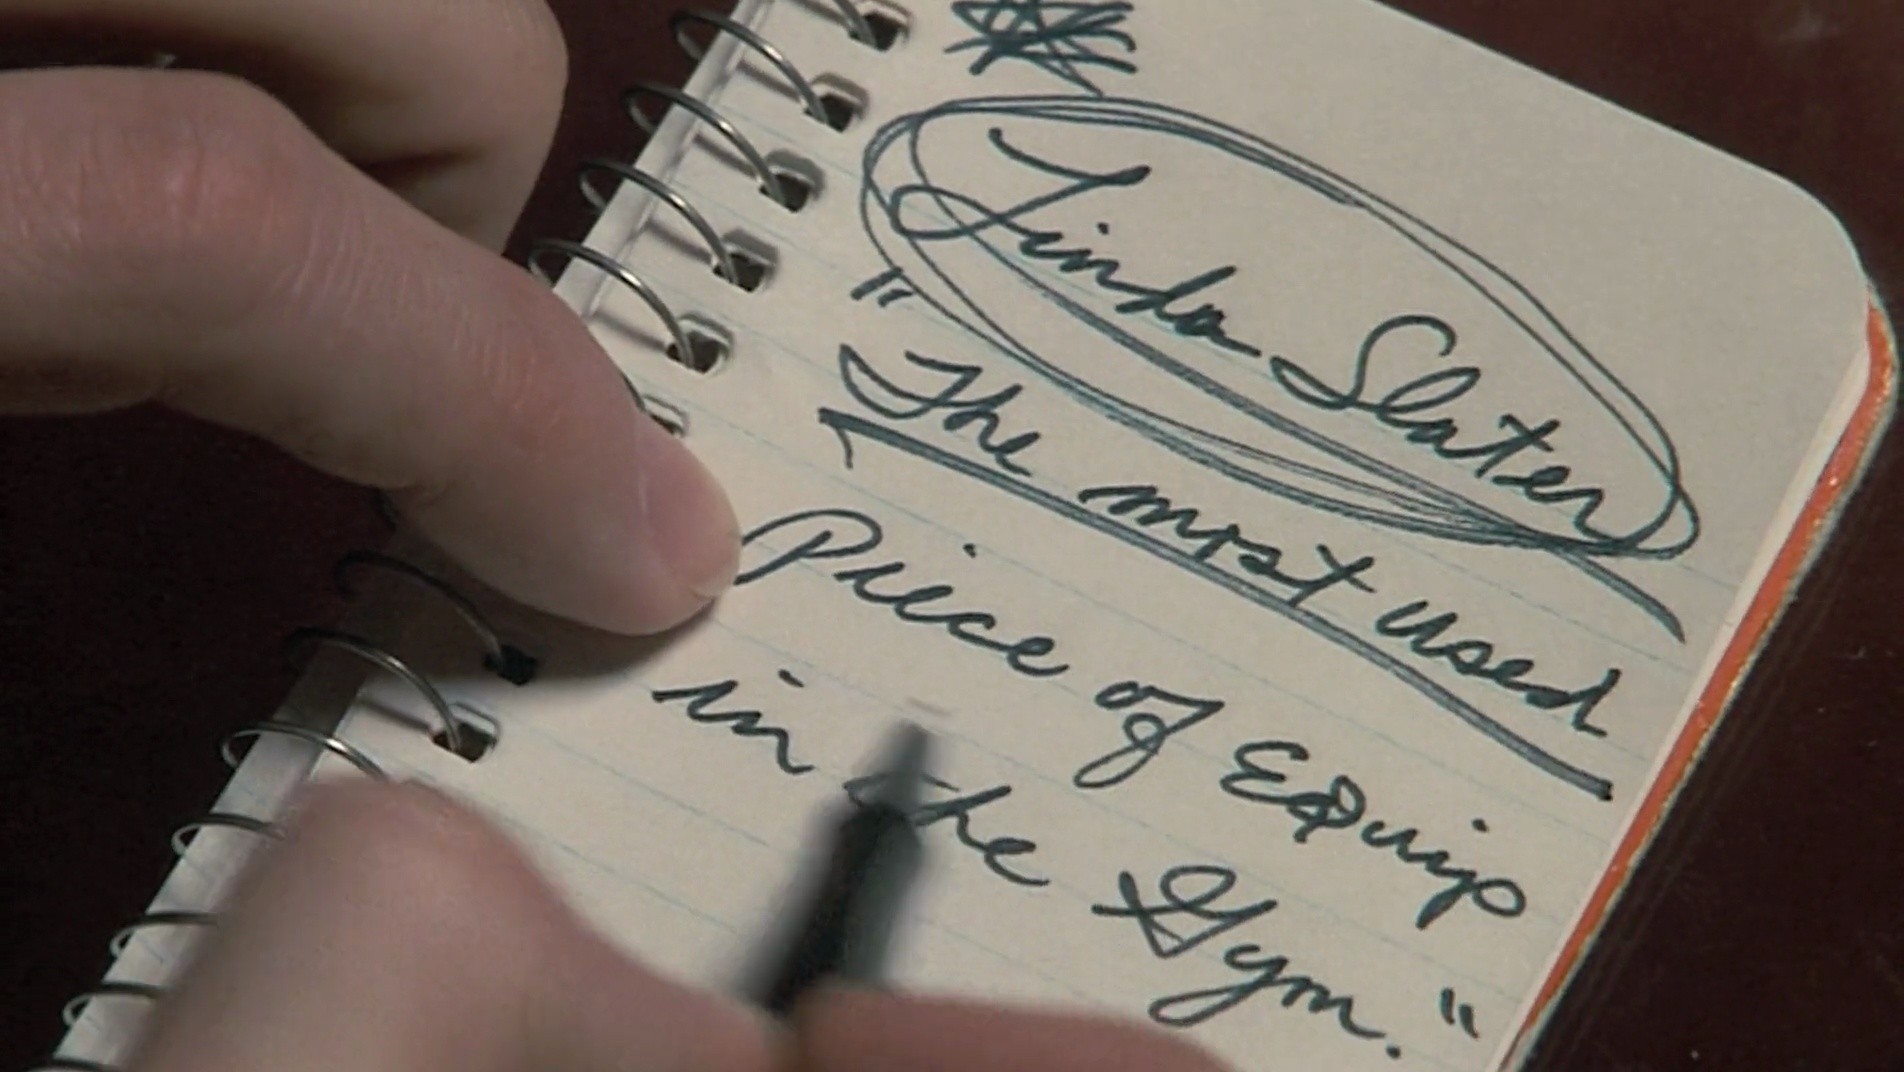 Linda Slater
"The most used
Piece of EQuip
in the Gym."